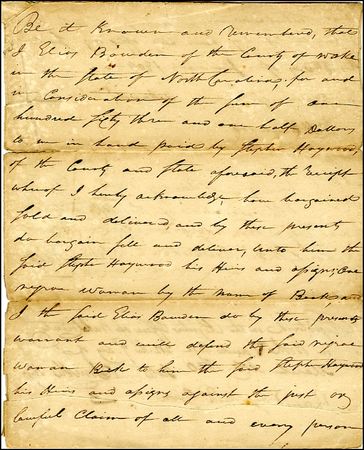 Be it Known and Remembered, that
I Elias Bowden of the County of Wake
in the State of North Carolina, for and
in Consideration of the sum of one
hundred fifty three and one half Dollars
to me in hand paid by Stephen Haywood,
of the County and State aforesaid, the receipt
whereof I hereby acknowledge have bargained
sold and delivered, and by these presents
do bargain sell and deliver, unto him the
said Stephen Haywood his Heirs and assigns, One
negroe Woman by the name of and
I the said Elias Bowden do by these presents
warrant and will defend the said negroe
Woman to him the said Stephen Haywood
his Heirs and assigns against the just or
lawful Claim of all and every person